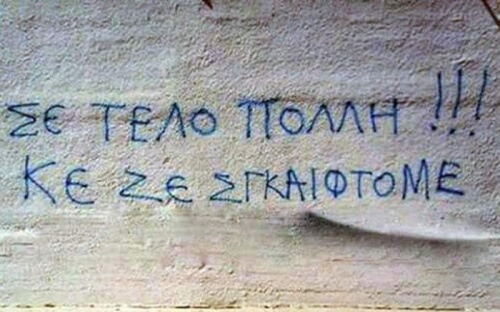 ΣΕ ΤΕΛΟ ΠΟΛΛΗ !!!
ΚΕ ΖΕ ΣΓΚΑΙΦΤΟΜΕ